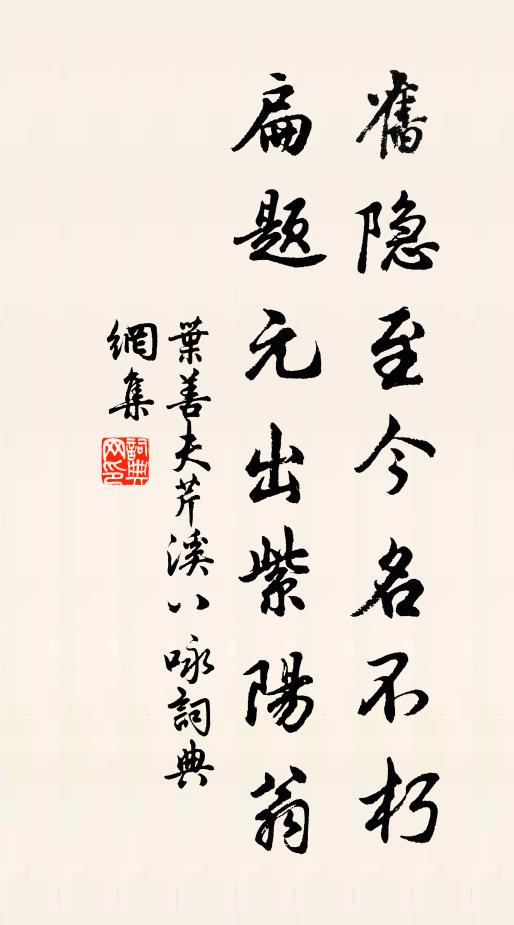 舊隐至今名不朽
扁题元出紫陽翁
葉善夫芹溪八咏詞典
網集
詞典网印